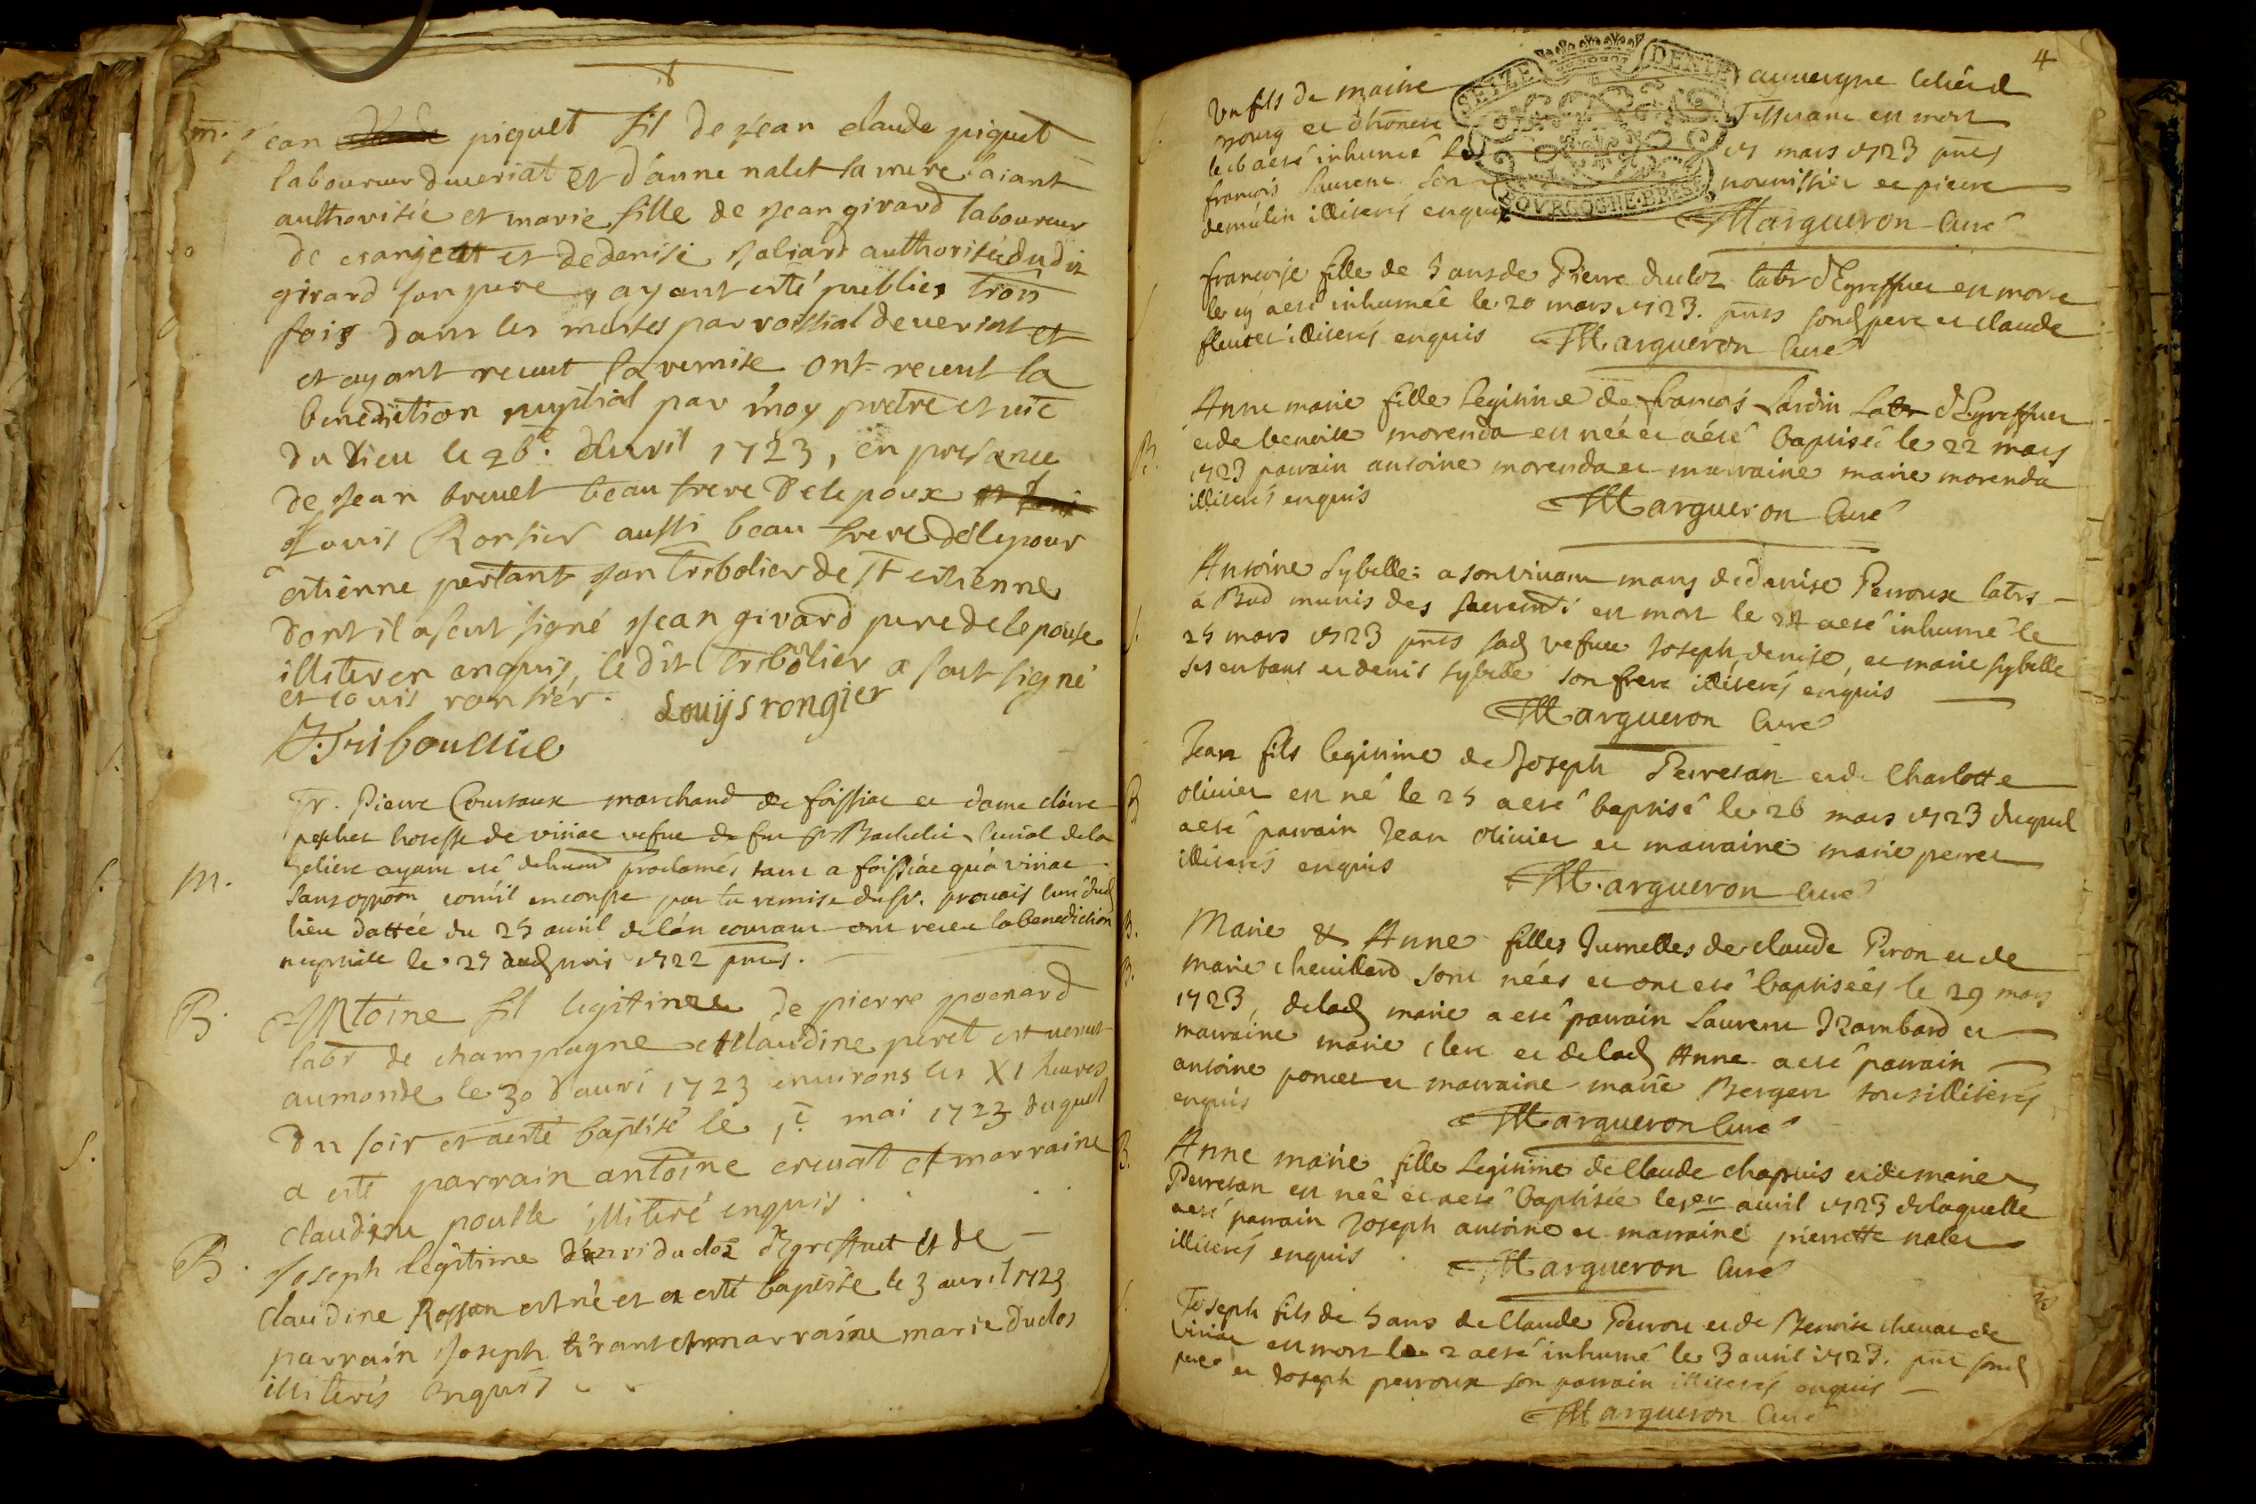 m. jean piquet fil de jean claude piquet
laboureur de veriat et d'anne nalet sa mere
authorisée et marie fille de jean girard laboureur
de et de denise authorisée dudit
girard son pere ayant esté publies trois
fois dans les messes parroissial de veriat et
et ayant receut la remise ont receut la
benediction nuptial par moy pretre et vic
du lieu le 26e. d'avril 1723, en presance
de jean brevet beau frere de lepoux
Louis Ronsier aussi beau frere de lepoux
estienne jean tribolier de st estienne
dont il a scut signé jean girard pere de lepouse
illiteren anquis, ledit tribolier a scut signé
et louis ronsier. Louijs rongier
Sr. Pierre marchand de foissiac et dame claire
hotesse de viriac vefue de feu Sr
ayant eté proclamés tant a foissiac qu'a viriac
M.
sans oppoõn com'il enconste par la remise du Sr. curé dud
lieu dattée du 25 avril de l'an courant ont receu la benediction
nuptiale le 27 dud mois 1722 pnts.
B. Antoine fil legitime de pierre poenard
labr de champagne et claudine peret est venut
au monde le 30 d'auri 1723 environs les XI heures
du soir et a esté baptisé le 1e mai 1723 duquel
a esté parrain antoine et marraine
claudine illiteré enquis
B. Joseph legitime duclos d'Egreffuet et de
claudine Rossan est né et a esté baptisé le 3 auril 1723
parrain Joseph tirant et marraine marie duclos
illiterés enquis
4
SEIZE DENIE
BOVRGOGNE. BRESSE
Un fils de maitre auuergne
bourg et Tisserant est mort
le 16 a eté inhumé le 17 mars 1723 pnts
françois Laurent son nourrissier et pierre
demulin illiterés enquis
Margueron Curé
françoise fille de 3 ans de Pierre Ducloz labr d'Egreffuet est morte
le 19 a eté inhumée le 20 mars 1723. pnts sond pere et claude
illiterés enquis Margueron Curé
B. Anne marie fille legitime de françois Jardin labr d'Egreffuet
et de benoite morenda est née et a eté baptisée le 22 mars
1723 parrain antoine morenda et marraine marie morenda
illiterés enquis Margueron Curé
Antoine Sybelle a son vivant mary de denise Perroux labrs
a Bud munis des sacremts est mort le 24 a eté inhumé le
25 mars 1723 pnts sad vefue Joseph, denise, et marie sybelle
ses enfans et denis sybelle son frere illiterés enquis
Margueron Curé
B Jean fils legitime de Joseph Perretan et de Charlotte
olivier est né le 25 a eté baptisé le 26 mars 1723 duquel
a eté parrain Jean olivier et marraine marie perret
illiterés enquis Margueron Curé
B. Marie & Anne filles Jumelles de claude Piron et de
B. marie chevillard sont nées et ont eté baptisées le 29 mars
1723, de lad marie a eté parrain Laurent Rambard et
marraine marie clerc et de lad Anne a eté parrain
antoine poncet et marraine marie Berger tous illiterés
enquis Margueron Curé
B. Anne marie fille Legitime de Claude chapuis et de marie
Perretan est née et a eté baptisée le 1er auril 1723 de laquelle
a eté parrain Joseph antoine et marraine pierrette nalet
illiterés enquis Margueron Curé
Joseph fils de 5 ans de Claude Perrou et de Benoite de
viriac est mort le 2 a eté inhumé le 3 auril 1723. pnt sond
pere et Joseph perroux son parrain illiterés enquis
Margueron Curé